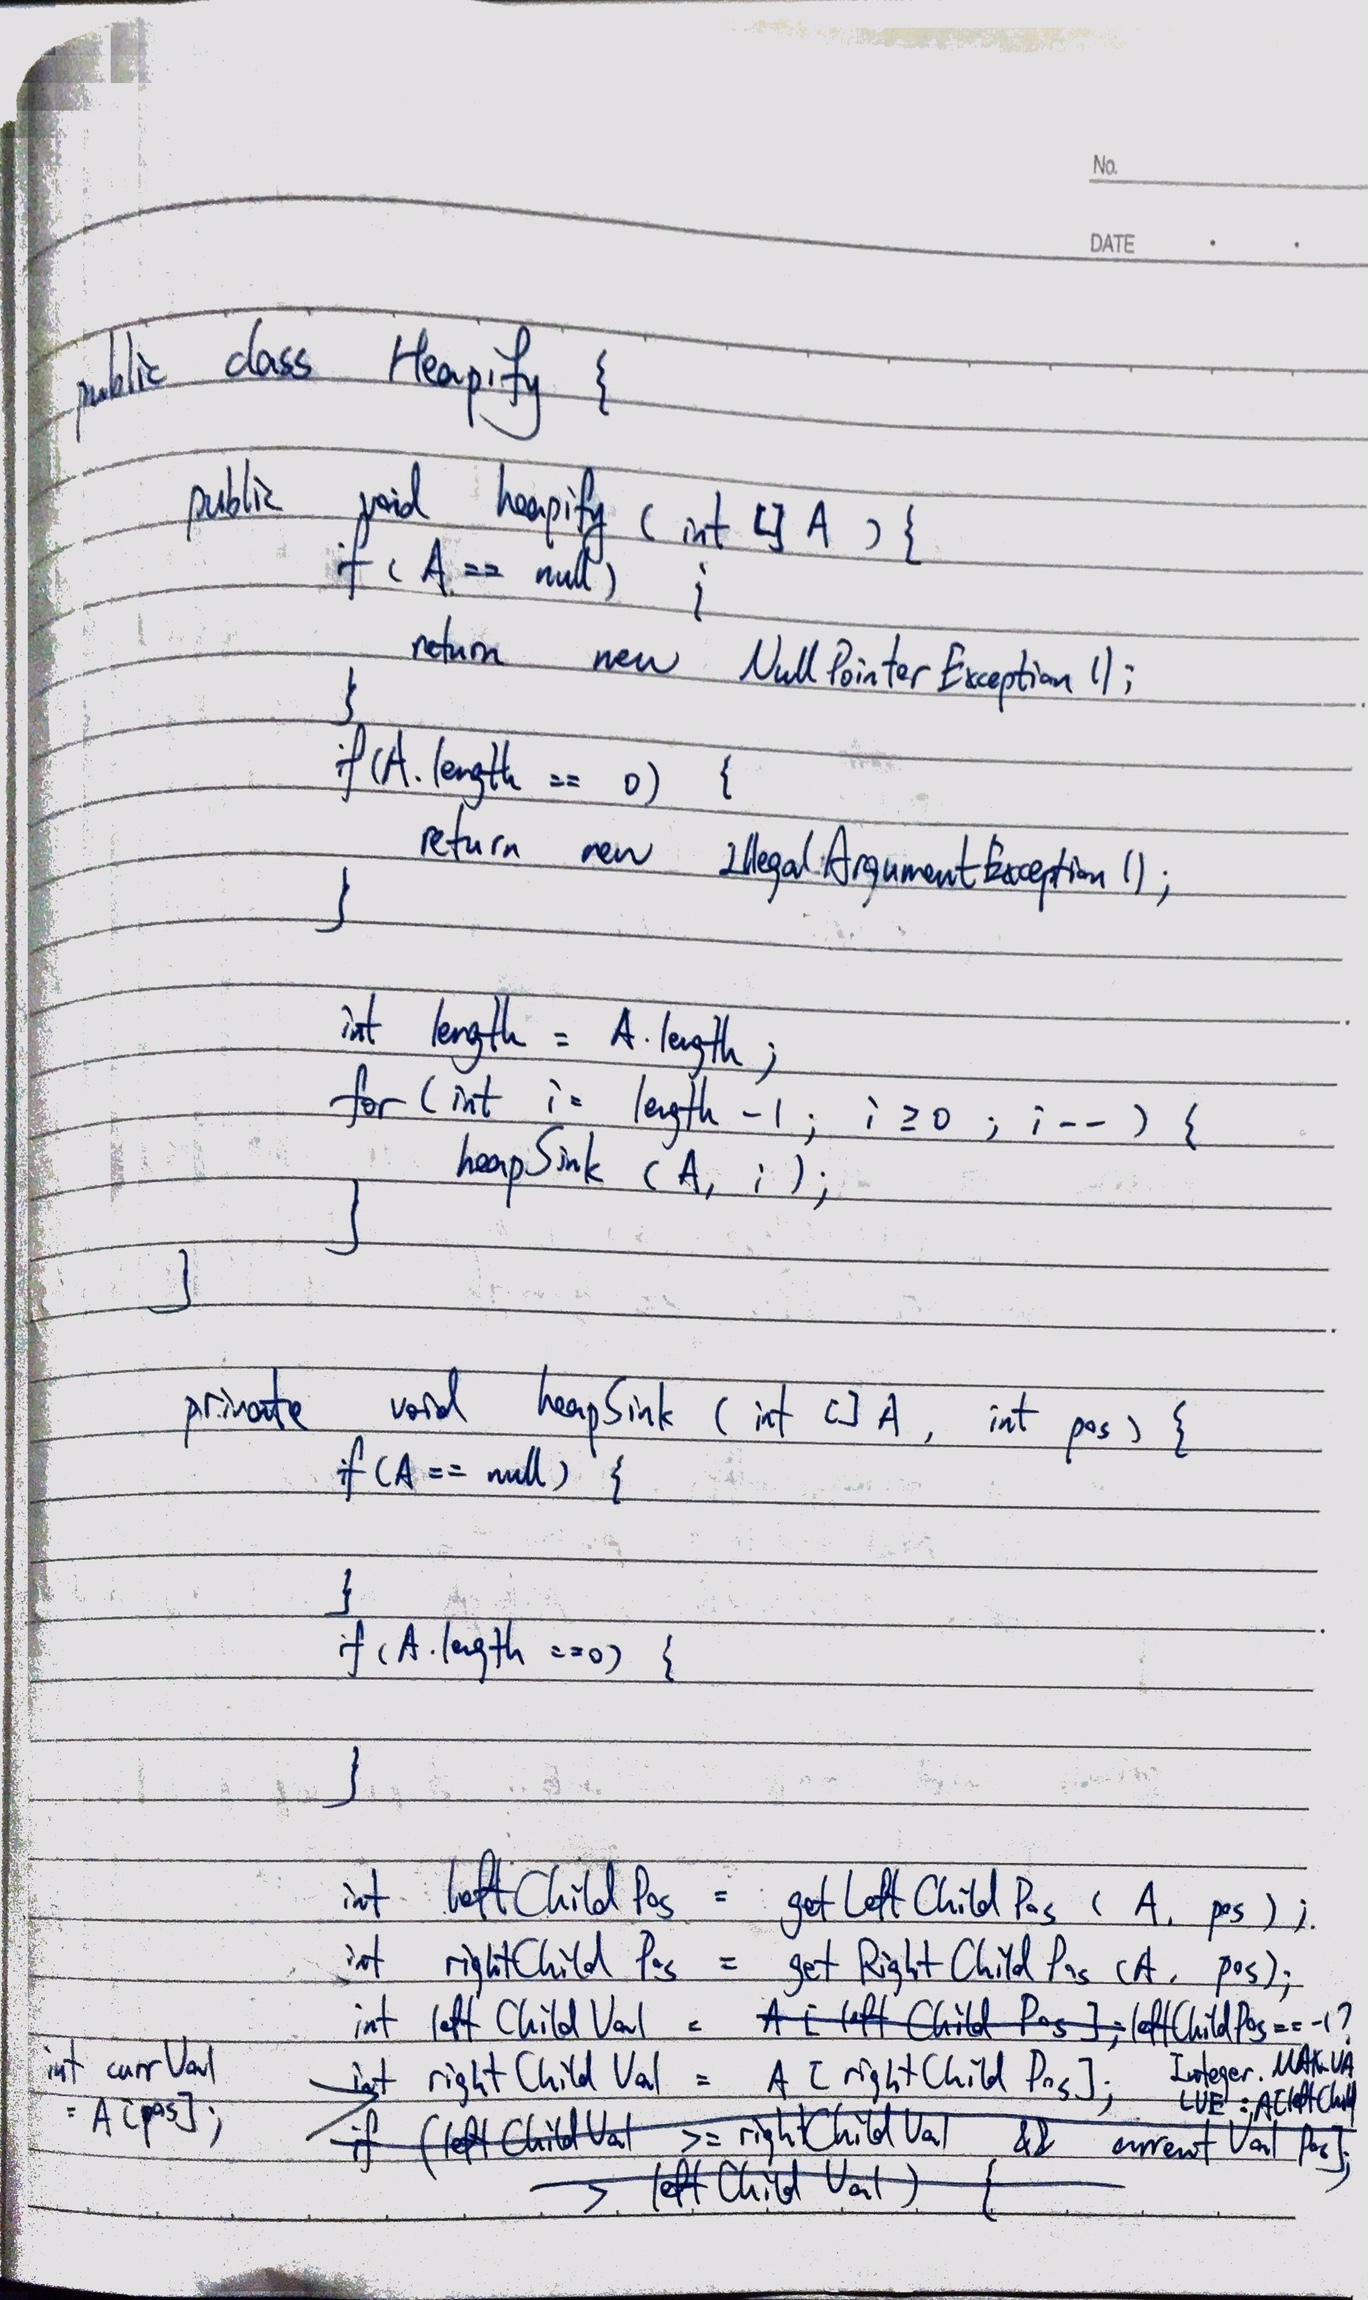 No.
DATE . .
public class Heapify {
public void heapify ( int [] A ) {
if ( A == null ) {
return new NullPointerException ();
}
if (A.length == 0) {
return new IllegalArgumentException ();
}
int length = A.length ;
for (int i = length -1; i ≥ 0 ; i -- ) {
heapSink (A, i );
}
}
private void heapSink ( int [] A , int pos ) {
if (A == null) {
}
if (A.length ==0) {
}
int leftChildPos = getLeftChildPos ( A, pos ) ;
int rightChildPos = getRightChildPos (A, pos);
int leftChildVal = A [ leftChildPos ]; leftChildPos == -1 ?
Integer.MAX_VA
LUE : A[leftChild
Pos];
int rightChildVal = A [rightChildPos];
int currVal
= A[pos];
if (leftChildVal >= rightChildVal && currentVal
> leftChildVal) {